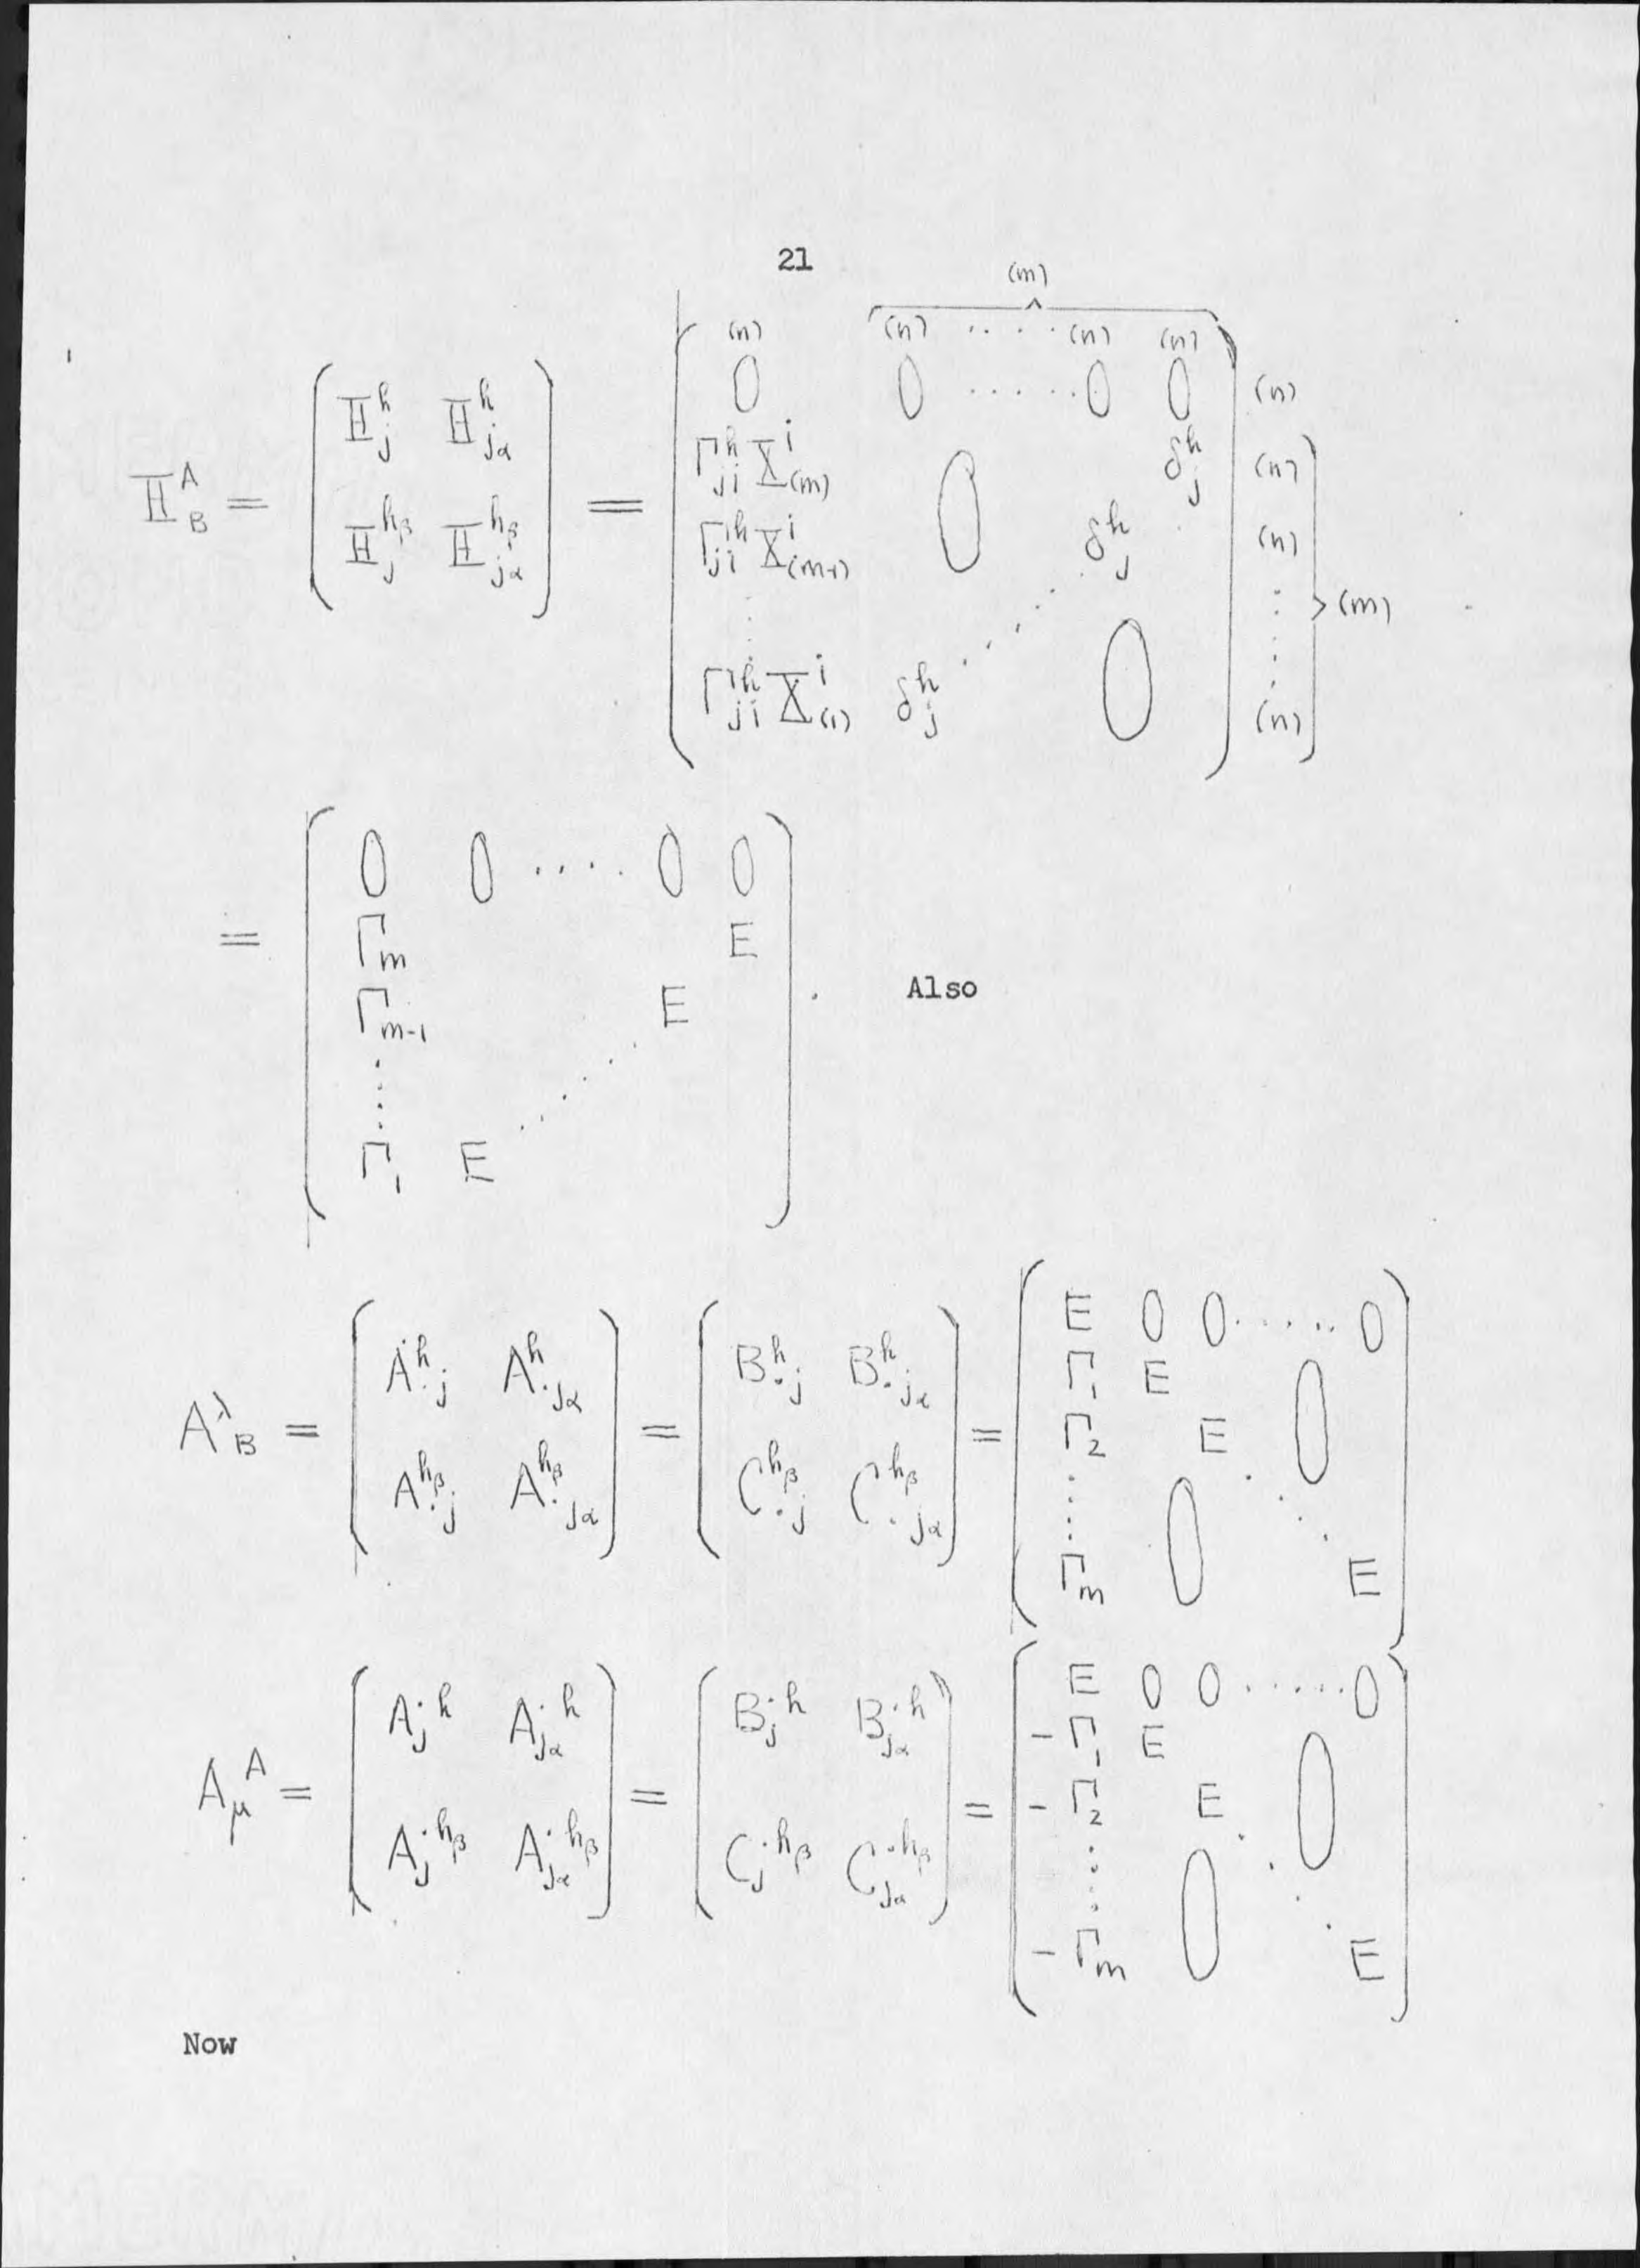 21
$$Ξ^A_B = \begin{pmatrix} Ξ^h_j & Ξ^h_{j_α} \\ Ξ^{h_β}_j & Ξ^{h_β}_{j_α} \end{pmatrix} = \begin{pmatrix} \overset{(n)}{0} & \overset{(n)}{0} & \cdots & \overset{(n)}{0} & \overset{(n)}{0} \\ Γ^h_{ji} X^i_{(m)} & & & & δ^h_j \\ Γ^h_{ji} X^i_{(m-1)} & 0 & & δ^h_j & \\ \vdots & & ⋰ & & 0 \\ Γ^h_{ji} X^i_{(1)} & δ^h_j & & & \end{pmatrix} \begin{matrix} (n) \\ (n) \\ (n) \\ \vdots \\ (n) \end{matrix} \Big\} (m)$$ (m)
$$= \begin{pmatrix} 0 & 0 & \cdots & 0 & 0 \\ Γ_m & & & & E \\ Γ_{m-1} & & & E & \\ \vdots & & ⋰ & & \\ Γ_1 & E & & & \end{pmatrix}.$$ Also
$$A^λ{}_B = \begin{pmatrix} A^h_{.j} & A^h_{.j_α} \\ A^{h_β}_{.j} & A^{h_β}_{.j_α} \end{pmatrix} = \begin{pmatrix} B^h_{.j} & B^h_{.j_α} \\ C^{h_β}_{.j} & C^{h_β}_{.j_α} \end{pmatrix} = \begin{pmatrix} E & 0 & 0 & \cdots & 0 \\ Γ_1 & E & & & \\ Γ_2 & & E & & 0 \\ \vdots & 0 & & \ddots & \\ Γ_m & & & & E \end{pmatrix}$$
$$A_μ{}^A = \begin{pmatrix} A_j^{.h} & A_{j_α}^{.h} \\ A_j^{.h_β} & A_{j_α}^{.h_β} \end{pmatrix} = \begin{pmatrix} B_j^{.h} & B_{j_α}^{.h} \\ C_j^{.h_β} & C_{j_α}^{.h_β} \end{pmatrix} = \begin{pmatrix} E & 0 & 0 & \cdots & 0 \\ -Γ_1 & E & & & \\ -Γ_2 & & E & & 0 \\ \vdots & 0 & & \ddots & \\ -Γ_m & & & & E \end{pmatrix}$$
Now